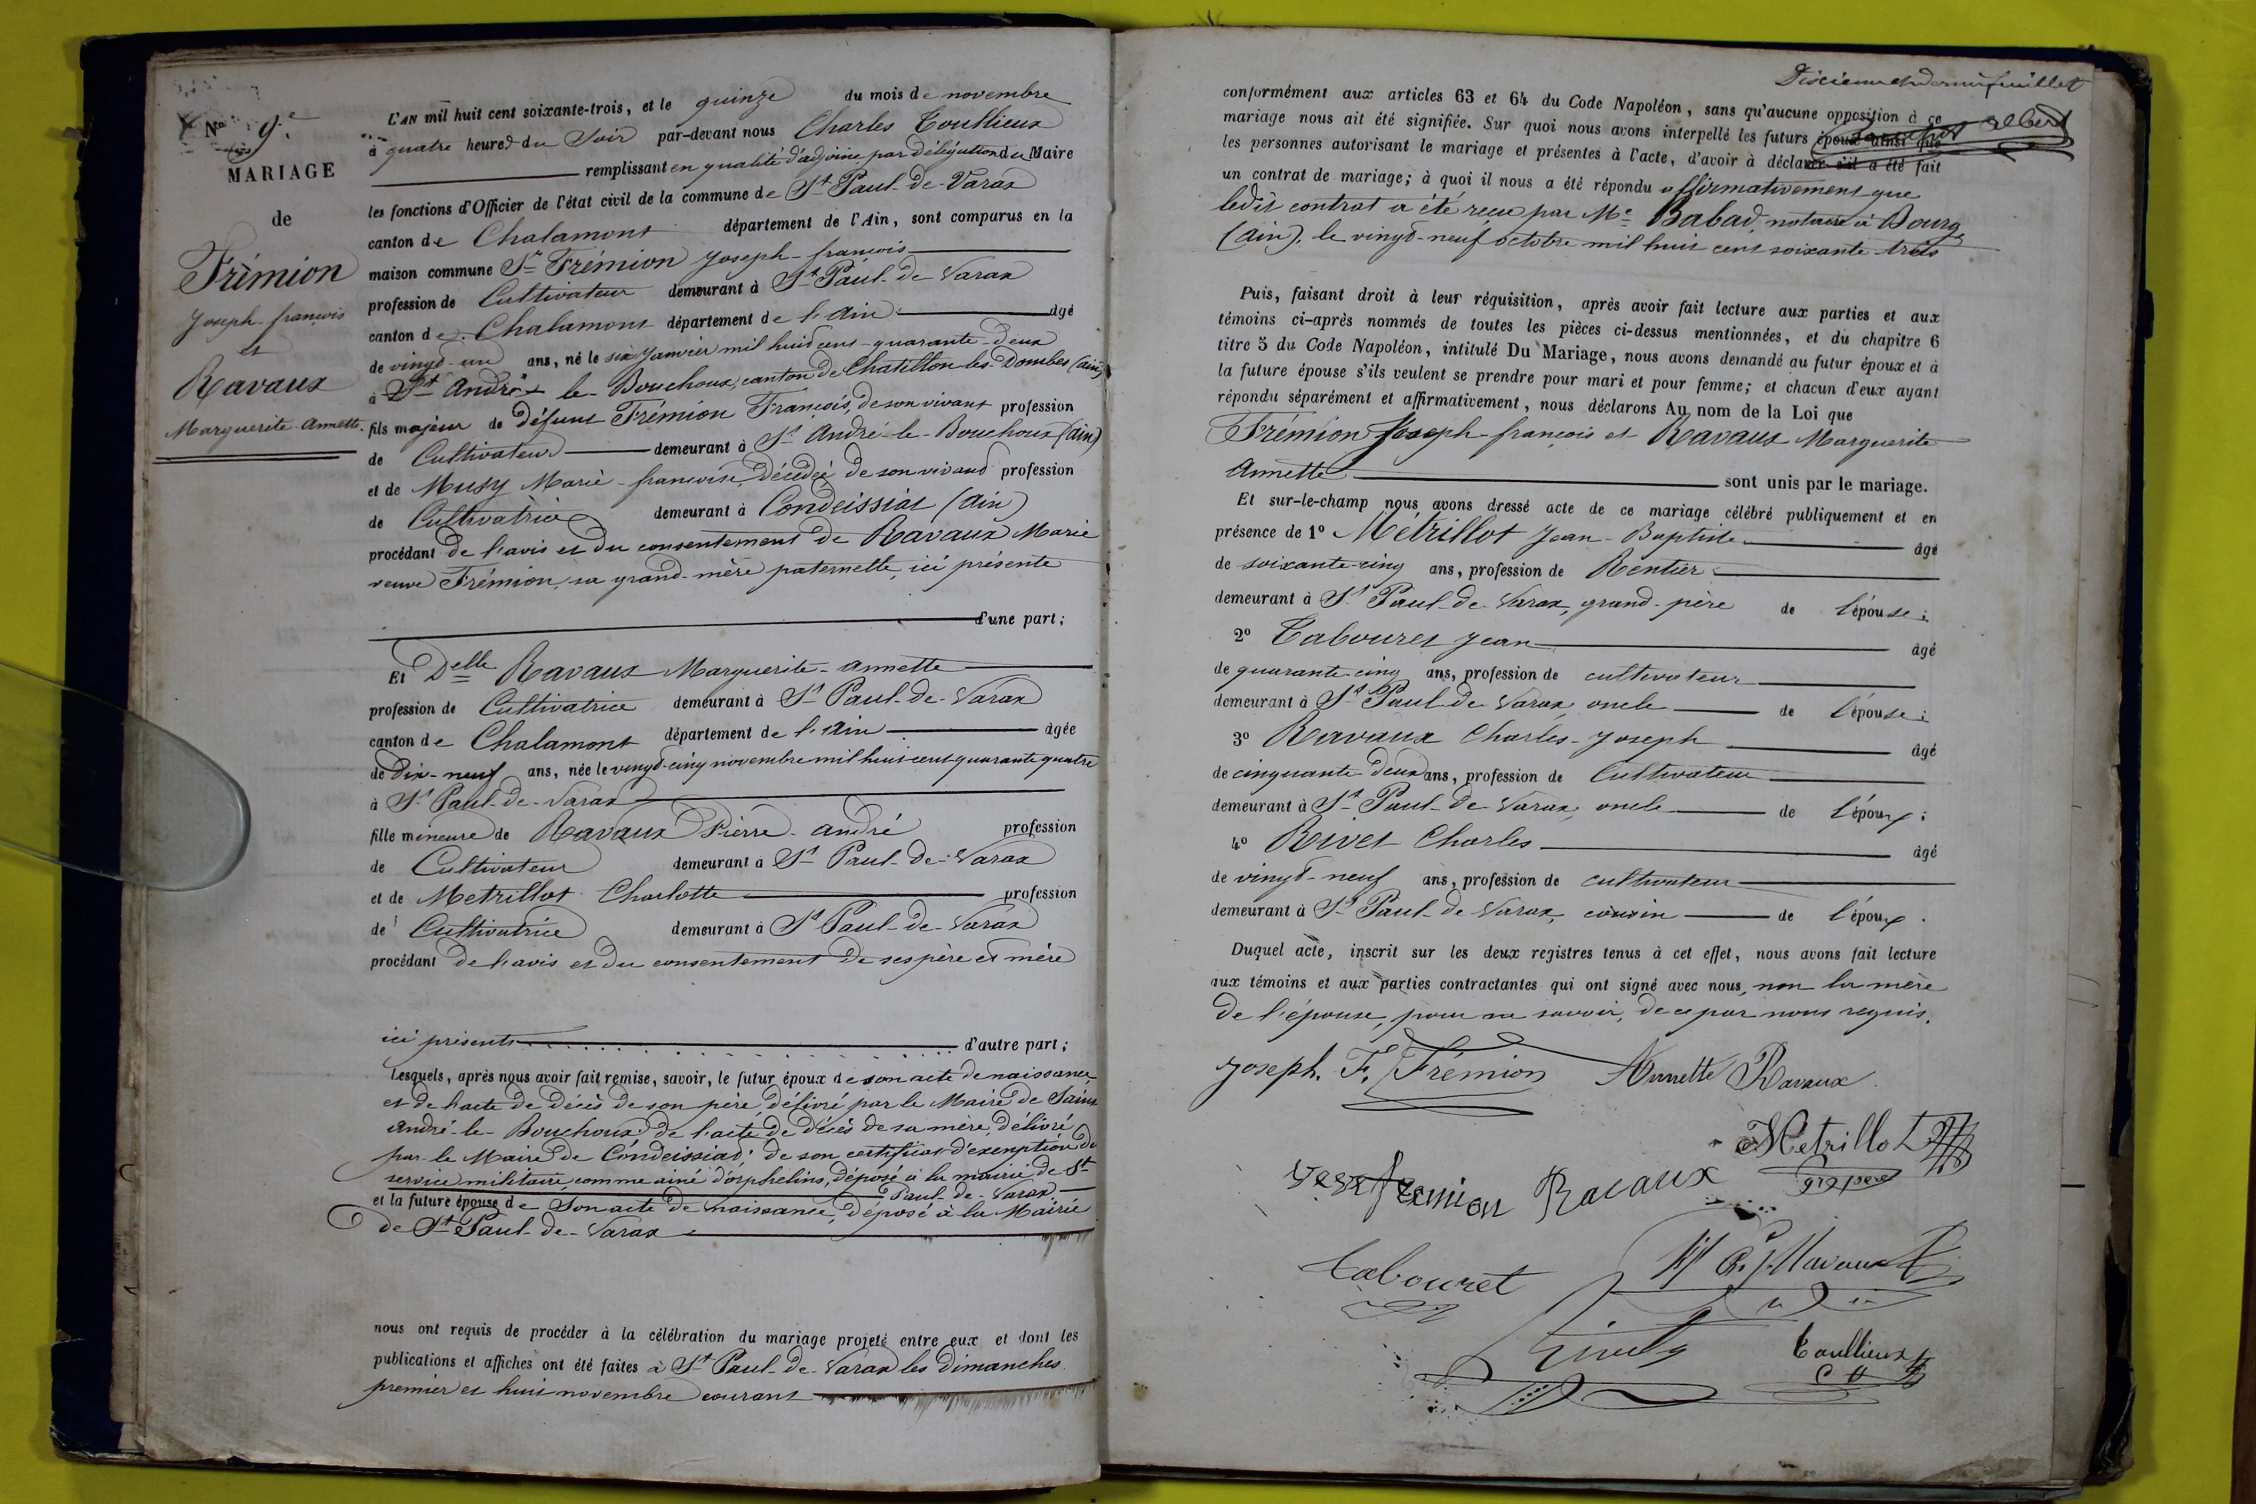 N° 9e
MARIAGE
de
Frémion
Joseph-françois
et
Ravaux
Marguerite-Annette.
L'AN mil huit cent soixante-trois, et le quinze du mois de novembre
à quatre heures du Soir par-devant nous Charles Toullieux
remplissant en qualité d'adjoint par délégation du Maire
les fonctions d'Officier de l'état civil de la commune de St Paul-de-Varax
canton de Chalamont département de l'Ain, sont comparus en la
maison commune Sr Frémion Joseph-françois
profession de Cultivateur demeurant à St Paul-de-Varax
canton de Chalamont département de l'Ain âgé
de vingt-un ans, né le six Janvier mil huit cent-quarante-deux
à St André-le-Bouchoux, canton de Chatillon-les-Dombes (ain)
fils majeur de défunt Frémion François, de son vivant profession
de Cultivateur demeurant à St André-le-Bouchoux (ain)
et de Musy Marie-françoise, décédée de son vivant profession
de Cultivatrice demeurant à Condeissiat (ain)
procédant de l'avis et du consentement de Ravaux Marie
veuve Frémion, sa grand-mère paternelle, ici présente
d'une part;
Et Delle Ravaux Marguerite-Annette
profession de Cultivatrice demeurant à St Paul-de-Varax
canton de Chalamont département de l'Ain âgée
de dix-neuf ans, née le vingt-cinq novembre mil huit cent quarante quatre
à St Paul-de-Varax
fille mineure de Ravaux Pierre-André profession
de Cultivateur demeurant à St Paul-de-Varax
et de Metrillot Charlotte profession
de Cultivatrice demeurant à St Paul-de-Varax
procédant de l'avis et du consentement de ses père et mère
ici présents d'autre part;
Lesquels, après nous avoir fait remise, savoir, le futur époux de son acte de naissance
et de l'acte de décès de son père, délivré par le Maire de Saint
André-le-Bouchoux; de l'acte de décès de sa mère, délivré
par le Maire de Condeissiat; de son certificat d'exemption du
service militaire comme ainé d'orphelins, déposé à la mairie de St
Paul-de-Varax
et la future épouse de Son acte de naissance, déposé à la Mairie
de St Paul-de-Varax
nous ont requis de procéder à la célébration du mariage projeté entre eux et dont les
publications et affiches ont été faites à St Paul-de-Varax les dimanches
premier et huit novembre courant
Dixième et dernier feuillet
conformément aux articles 63 et 64 du Code Napoléon, sans qu'aucune opposition à ce
mariage nous ait été signifiée. Sur quoi nous avons interpellé les futurs époux ainsi que
les personnes autorisant le mariage et présentes à l'acte, d'avoir à déclarer s'il a été fait
un contrat de mariage; à quoi il nous a été répondu affirmativement que
ledit contrat a été recu par Me Babad, notaire à Bourg
(ain), le vingt-neuf octobre mil huit cent soixante-trois
Puis, faisant droit à leur réquisition, après avoir fait lecture aux parties et aux
témoins ci-après nommés de toutes les pièces ci-dessus mentionnées, et du chapitre 6
titre 5 du Code Napoléon, intitulé Du Mariage, nous avons demandé au futur époux et à
la future épouse s'ils veulent se prendre pour mari et pour femme; et chacun d'eux ayant
répondu séparément et affirmativement, nous déclarons Au nom de la Loi que
Frémion Joseph-françois et Ravaux Marguerite
Annette sont unis par le mariage.
Et sur-le-champ nous avons dressé acte de ce mariage célébré publiquement et en
présence de 1° Metrillot Jean-Baptiste âgé
de soixante-cinq ans, profession de Rentier
demeurant à St Paul-de-Varax, grand-père de l'épouse;
2° Tabouret Jean âgé
de quarante-cinq ans, profession de cultivateur
demeurant à St Paul-de-Varax, oncle de l'épouse;
3° Ravaux Charles-Joseph âgé
de cinquante-deux ans, profession de Cultivateur
demeurant à St Paul-de-Varax, oncle de l'époux;
4° Rivet Charles âgé
de vingt-neuf ans, profession de cultivateur
demeurant à St Paul-de-Varax, cousin de l'époux.
Duquel acte, inscrit sur les deux registres tenus à cet effet, nous avons fait lecture
aux témoins et aux parties contractantes qui ont signé avec nous, non la mère
de l'épouse, pour ne savoir, de ce par nous requis.
Joseph. F. Frémion Annette Ravaux
Metrillot
veve fremion Ravaux
Tabouret
Toullieux